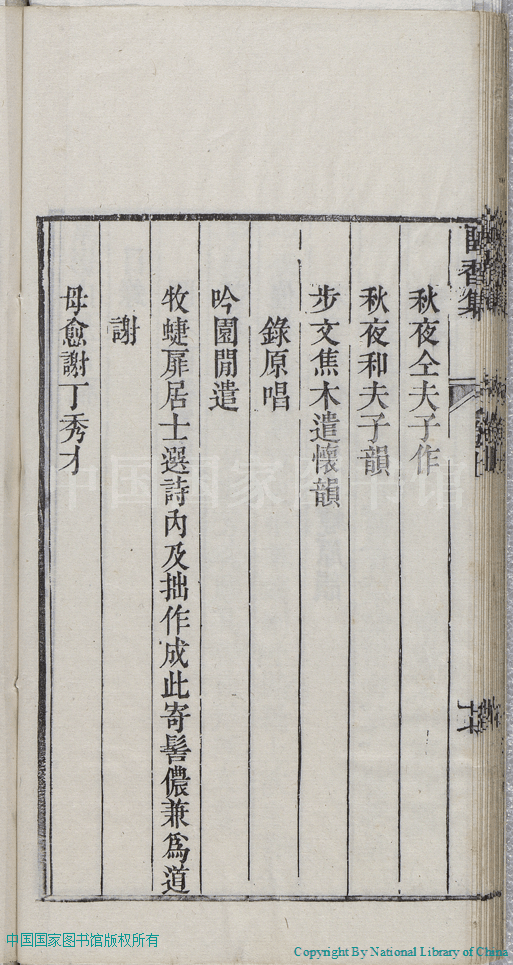 秋夜仝夫子作
秋夜和夫子韻
步文焦木遣懷韻
錄原唱
吟園閒遣
牧蜨扉居士選詩內及拙作成此寄髻儂兼爲道
謝
母愈謝丁秀才
香集
中国国家图书馆
中国国家图书馆版权所有
Copyright By National Library of China